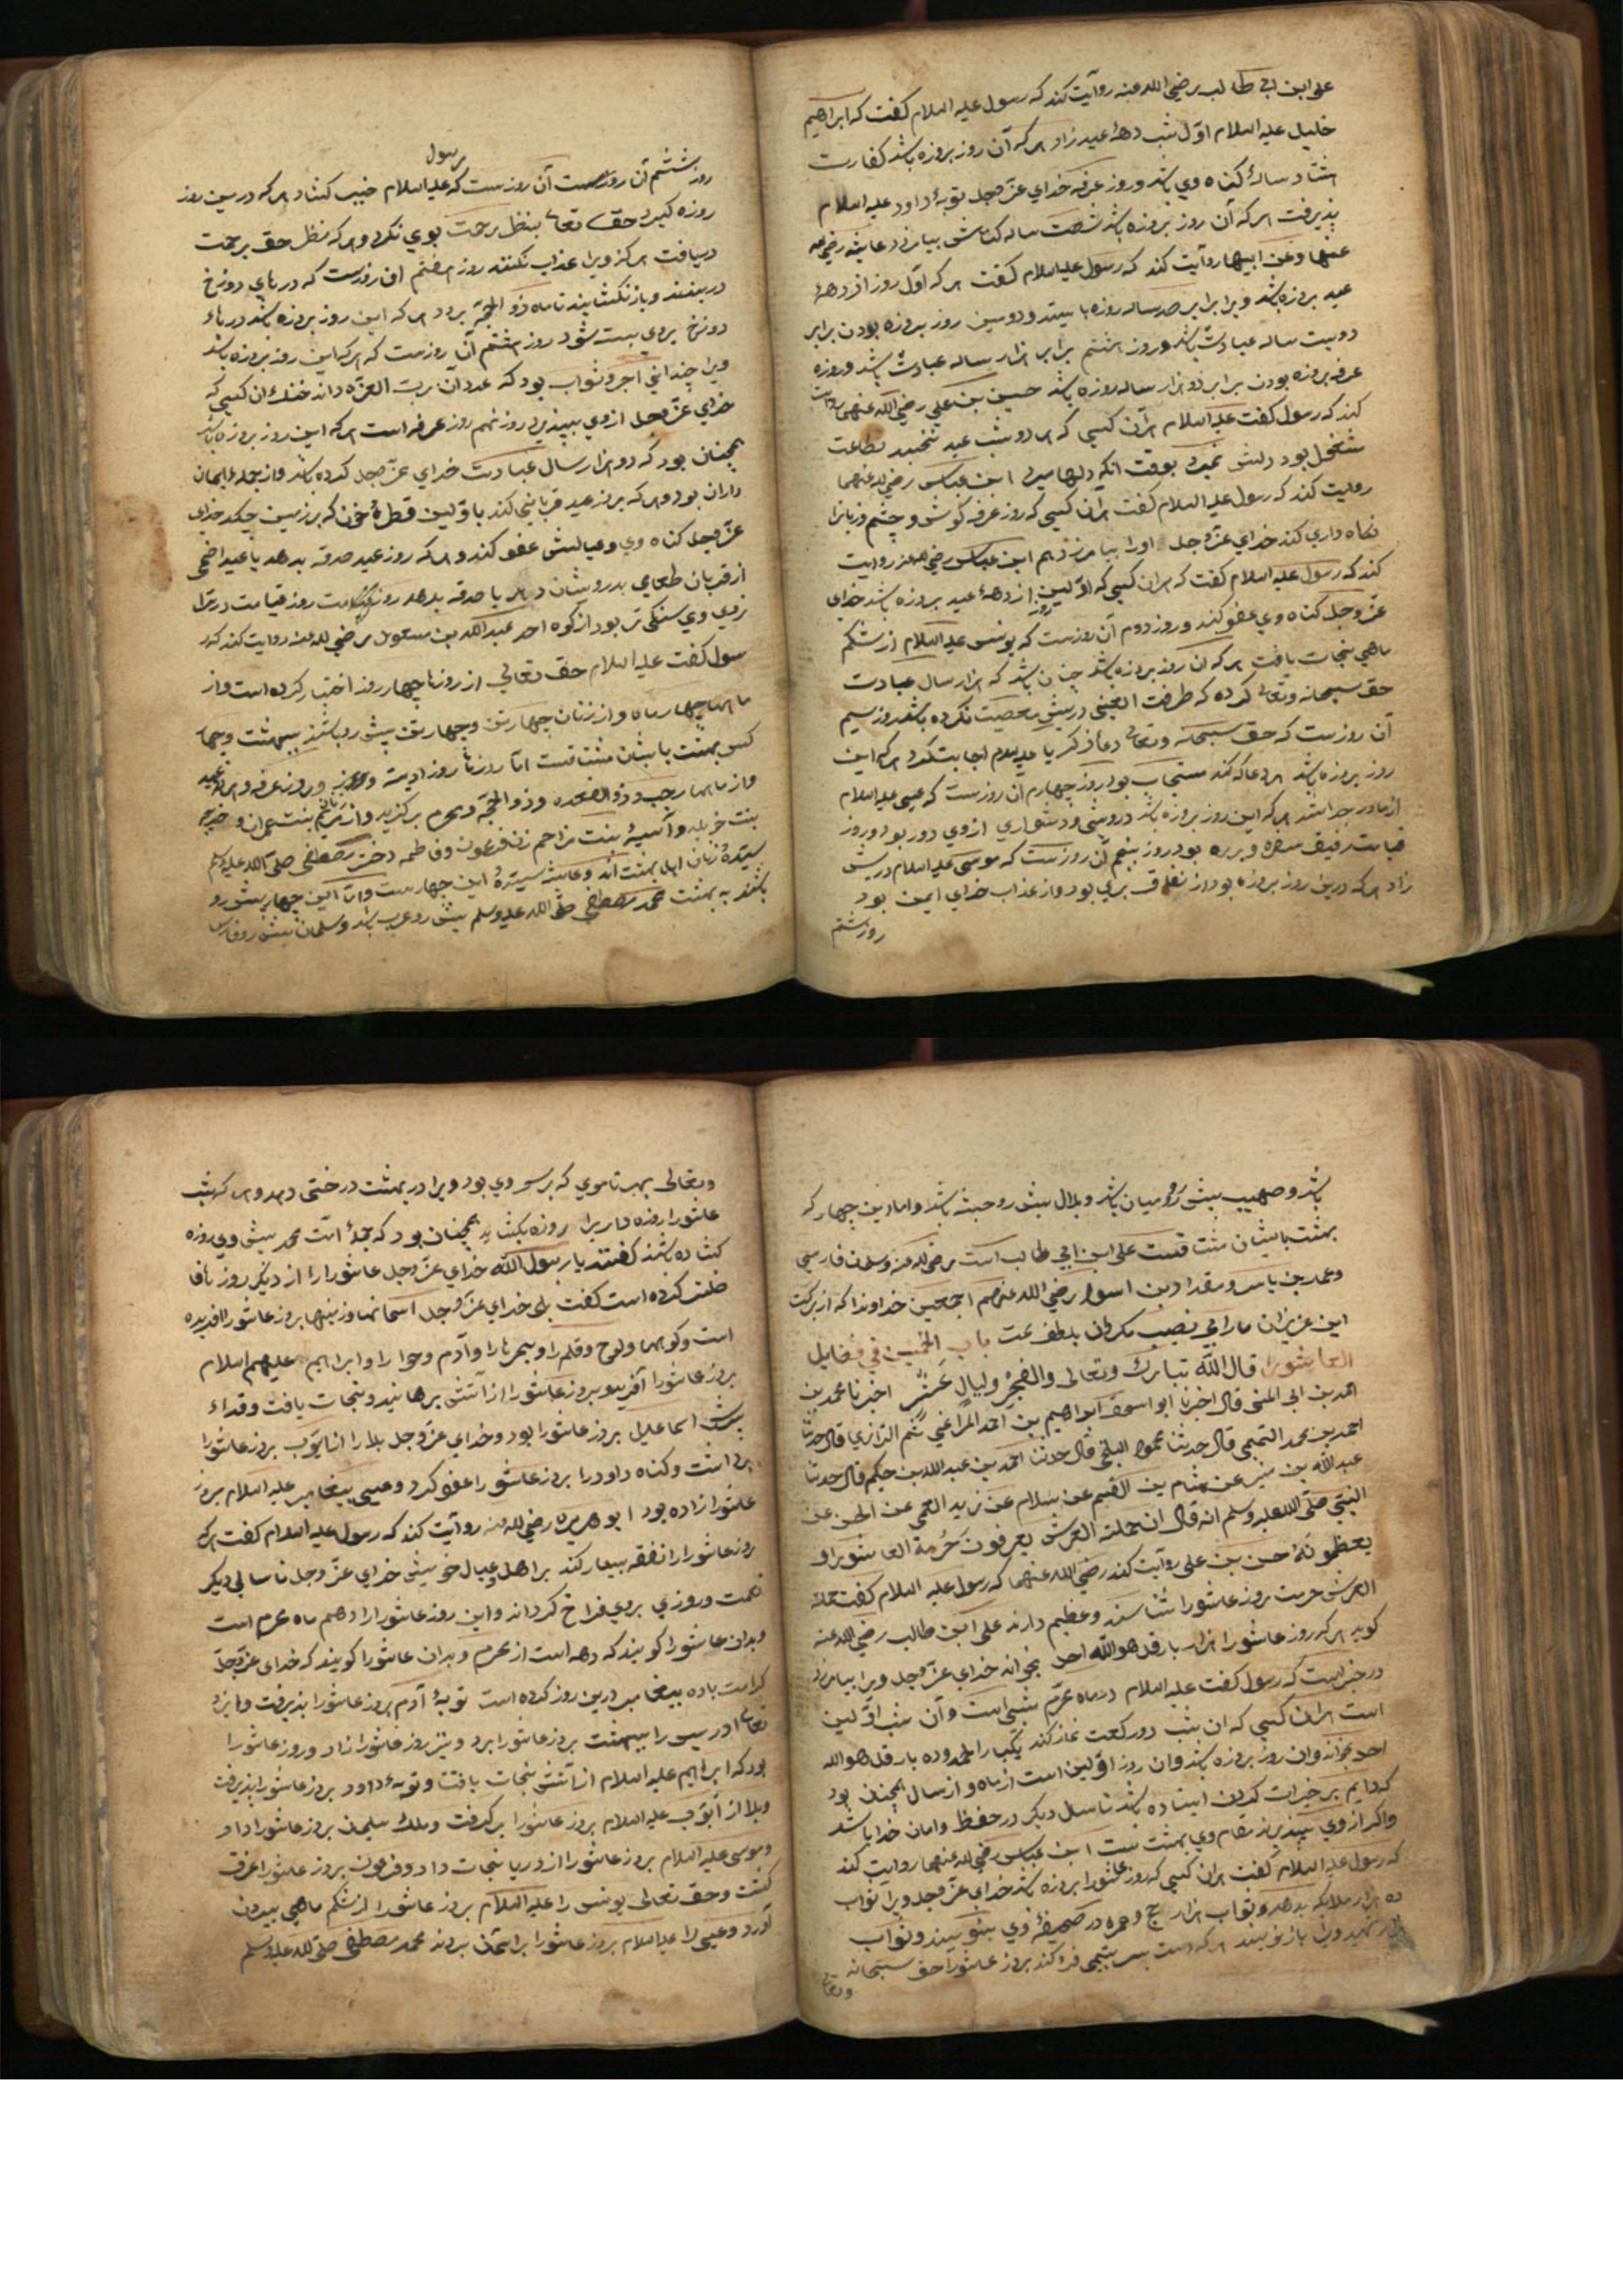 علی ابن ابی طالب رضی الله عنه روآیت کند که رسول علیه السلام کفت که ابراهیم
خلیل علیه السلام اوّل شب دههٔ عید زاد هر که آن روز بروزه باشد کفارت
هشتاد سالهٔ کناه وی باشد و روز عرفه خدای عزّ وجل توبهٔ داود علیه السلام
پذیرفت هر که آن روز بروزه باشد شصت ساله کناهش بیامرزد عایشه رضی الله
عنها وعن ابیها روآیت کند که رسول علیه السلام کفت هر که اوّل روز از دههٔ
عید بروزه باشد ویرا برابر صد ساله روزه باشد و دومین روز بروزه بودن برابر
دویست ساله عبادت باشد و روز هشتم برابر هزار ساله عبادت باشد و روزه
عرفه بروزه بودن برابر دو هزار ساله روزه باشد حسین بن علی رضی الله عنهما روآیت
کند که رسول کفت علیه السلام هر آن کسی که هر دو شب عید نخسبد بطاعت
مشغول بود دلش نمیرد بوقت انکه دلها میرد ابن عباس رضی الله عنهما
روایت کند که رسول علیه السلام کفت هر ان کسی که روز عرفه کوش و چشم و زبانرا
نکاه داری کند خدای عزّ وجل اورا بیامرزد هم ابن عباس رضی الله عنه روایت
کند که رسول علیه السلام کفت که هر ان کسی که اوّلین روز از دههٔ عید بروزه باشد خدای
عزّ وجل کناه وی عفو کند و روز دوم آن روزست که یونس علیه السلام از شکم
ماهی نجات یافت هر که ان روز بروزه باشد چنان باشد که هزار سال عبادت
حق سبحانه وتعالی کرده که طرفت العینی درپیش معصیت نکرده باشد روز سیم
آن روزست که حق سبحانه وتعالی دعا زکریا علیه السلام اجابت کرد هر که این
روز بروزه باشد هر دعا که کند مستجاب بود روز چهارم آن روزست که عیسی علیه السلام
از مادر جدا شد هر که این روز بروزه باشد درویشی و دشواری ازوی دور بود و روز
قیامت رفیق سفره و برره بود روز پنجم آن روزست که موسی علیه السلام دریش
زاد هر که درین روز بروزه بود از نفاق بری بود و از عذاب خدای ایمن بود
روز ششم
رسول
روز ششم آن روزست آن روزست که علیه السلام خیبر کشاد هر که درین روز
روزه کیرد حق تعالی بنظر رحمت بوی نکرد و هر که نظر حق برحمت
دریافت هرکز ویرا عذاب نکنند روز هفتم ان روزست که درهای دوزخ
دربندند و باز نکشایند تا ماه ذو الحجّه برود هر که این روز بروزه باشد درهاء
دوزخ بروی بست شود روز هشتم آن روزست که هر که این روز بروزه باشد
ویرا چندانی اجر و ثواب بود که عدد آن ربّ العزّه داند خنک ان کسی که
خدای عزّ وجل ازوی بپذیرد روز نهم روز عرفه است هر که این روز بروزه باشد
همچنان بود که دو هزار سال عبادت خدای عزّ وجل کرده باشد و از جمله ایمان
داران بود و هر که بروز عید قربانی کند باوّلین قطرهٔ خون که برزمین چکد خدای
عزّ وجل کناه وی و عیالش عفو کند و هر که روز عید صدقه بدهد یا عید اضحی
از قربان طعامی بدرویشان دهد یا صدقه بدهد روز قیامت روز قیامت درترازوی
وی سنکی تر بود از کوه احد عبد الله بن مسعود رضی الله عنه روایت کند که ر
سول کفت علیه السلام حق تعالی از روزها چهار روز اختیار کرده است و از
ماهها چهار ماه و از زنان چهار تن و چهار تن پیش رو باشند ببهشت و چهار
کس بهشت بایشان مشتاقست امّا روزها روز ادینه و روز عرفه و هر دو عید
و از ماهها رجب و ذو القعده و ذو الحجّه و محرم برکزید و از زنان مریم بنت عمران و خدیجه
بنت خویلد و آسیهٔ بنت مزاحم زن فرعون و فاطمه دختر مصطفی صلّی الله علیه وسلم
سیّدهٔ زنان اهل بهشت اند و عایشه سیّدهٔ این چهار ست و امّا این چهار پیش رو
باشند به بهشت محمد مصطفی صلّی الله علیه وسلم پیش رو عرب باشد و سلمان پیش رو فارس
باشد و صهیب پیش رو رومیان باشد و بلال پیش رو حبشه باشد و اما این چهار که
بهشت بایشان مشتاقست علی ابن ابی طالب است رضی الله عنه و سلمان فارسی
وعمار بن یاسر و مقداد بن اسود رضی الله عنهم اجمعین خداوندا که از برکت
این عزیزان مارا بی نصیب مکردان بلطف عمت باب الخمسین فی فضایل
العاشورا قال الله تبارک وتعالی والفجر ولیال عشر اخبرنا محمد بن
احمد بن ابی المنی قال اخبرنا ابو اسحق ابراهیم بن احمد المراغی ثم الرازی قال حدثنا
احمد بن محمد التمیمی قال حدثنا محمود البلخی قال حدثنا احمد بن عبد الله بن حکیم قال حدثنا
عبد الله بن منیر عن هشام بن القسیم عن سلام عن زید العمی عن الحسن عن
النبیّ صلّی الله علیه وسلم انه قال ان حملة العرش یعرفون حُرمة العاشورا و
یعظمونهٔ حسن بن علی روآیت کند رضی الله عنهما که رسول علیه السلام کفت حملة
العرش حرمت بروز عاشورا شناسند و عظیم دارند علی ابن طالب رضی الله عنه
کوید هر که روز عاشورا هزار بار قل هو الله احد بخواند خدای عزّ وجل ویرا بیامرزد
درخبر است که رسول کفت علیه السلام درماه محرّم شبی است و آن شب اوّلین
است هر ان کسی که ان شب دو رکعت نماز کند یکبار الحمد و ده بار قل هو الله
احد بخواند و ان روز بروزه باشد و ان روز اوّلین است از ماه و از سال همچنان بود
که دایم بر خیرات کردن ایستاده باشد تا سال دیکر درحفظ و امان خدا باشد
و اکر ازوی بپذیرند مقام وی بهشت ست ابن عباس رضی الله عنهما روایت کند
که رسول علیه السلام کفت هر ان کسی که روز عاشورا بروزه باشد خدای عزّ وجل ویرا ثواب
ده هزار ملایکه بدهد و ثواب هزار حج و عمره در صحیفهٔ وی بنویسند و ثواب
شهید ویرا باز نویسند هر که دست بسر یتیمی فرو کند بروز عاشورا حق سبحانه
وتعالی
وتعالی بهر تا موی که بر سر وی بود ویرا در بهشت درختی دهد و هر که شب
عاشورا روزه داریرا روزه بکشاید همچنان بود که جملهٔ امّت محمد پیش وی روزه
کشاده باشند کفتند یا رسول الله خدای عزّ وجل عاشورارا از دیکر روزها فا
ضلتر کرده است کفت بلی خدای عزّ وجل آسمانها و زمینها بروز عاشورا آفریده
است و کوهها و لوح و قلم را و بحرهارا و آدم و حوّا را و ابراهیم علیهم السلام
بروز عاشورا آفرید و بروز عاشورا از آتش برهانید و نجات یافت و فداء
پسرش اسماعیل بروز عاشورا بود و خدای عزّ وجل بلارا از ایّوب بروز عاشورا
برداشت و کناه داودرا بروز عاشورا عفو کرد و عیسی پیغامبر علیه السلام بروز
عاشورا زاده بود ابو هریره رضی الله عنه روآیت کند که رسول علیه السلام کفت هر که
روز عاشورارا نفقه بسیار کند بر اهل و عیال خویش خدای عزّ وجل تا سالی دیکر
نعمت و روزی بروی فراخ کرداند و این روز عاشورارا دهم ماه محرم است
و بدان عاشورا کویند که دهه است از محرم و بدان عاشورا کویند که خدای عزّ وجلّ
کرامت با ده پیغامبر درین روز کرده است توبهٔ آدم بروز عاشورا پذیرفت و ایزد
تعالی ادریس را ببهشت بروز عاشورا برد و نیز روز عاشورا زاد و روز عاشورا
بود که ابراهیم علیه السلام از آتش نجات یافت و توبهٔ داود بروز عاشورا پذیرفت
و بلا از ایّوب علیه السلام بروز عاشورا برکرفت و ملک سلیمان بروز عاشورا داد
و موسی علیه السلام بروز عاشورا از دریا نجات داد و فرعون بروز عاشورا غرق
کشت و حق تعالی یونس را علیه السلام بروز عاشورا از شکم ماهی بیرون
آورد و عیسی را علیه السلام بروز عاشورا براسمان بردند محمد مصطفی صلّی الله علیه وسلم